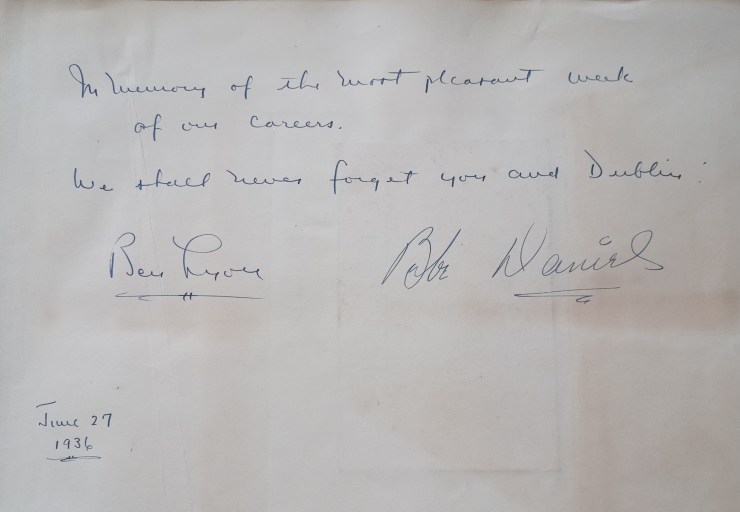 In memory of the most pleasant week
of our careers.
We shall never forget you and Dublin:
Ben Lyon
Bebe Daniels
June 27
1936